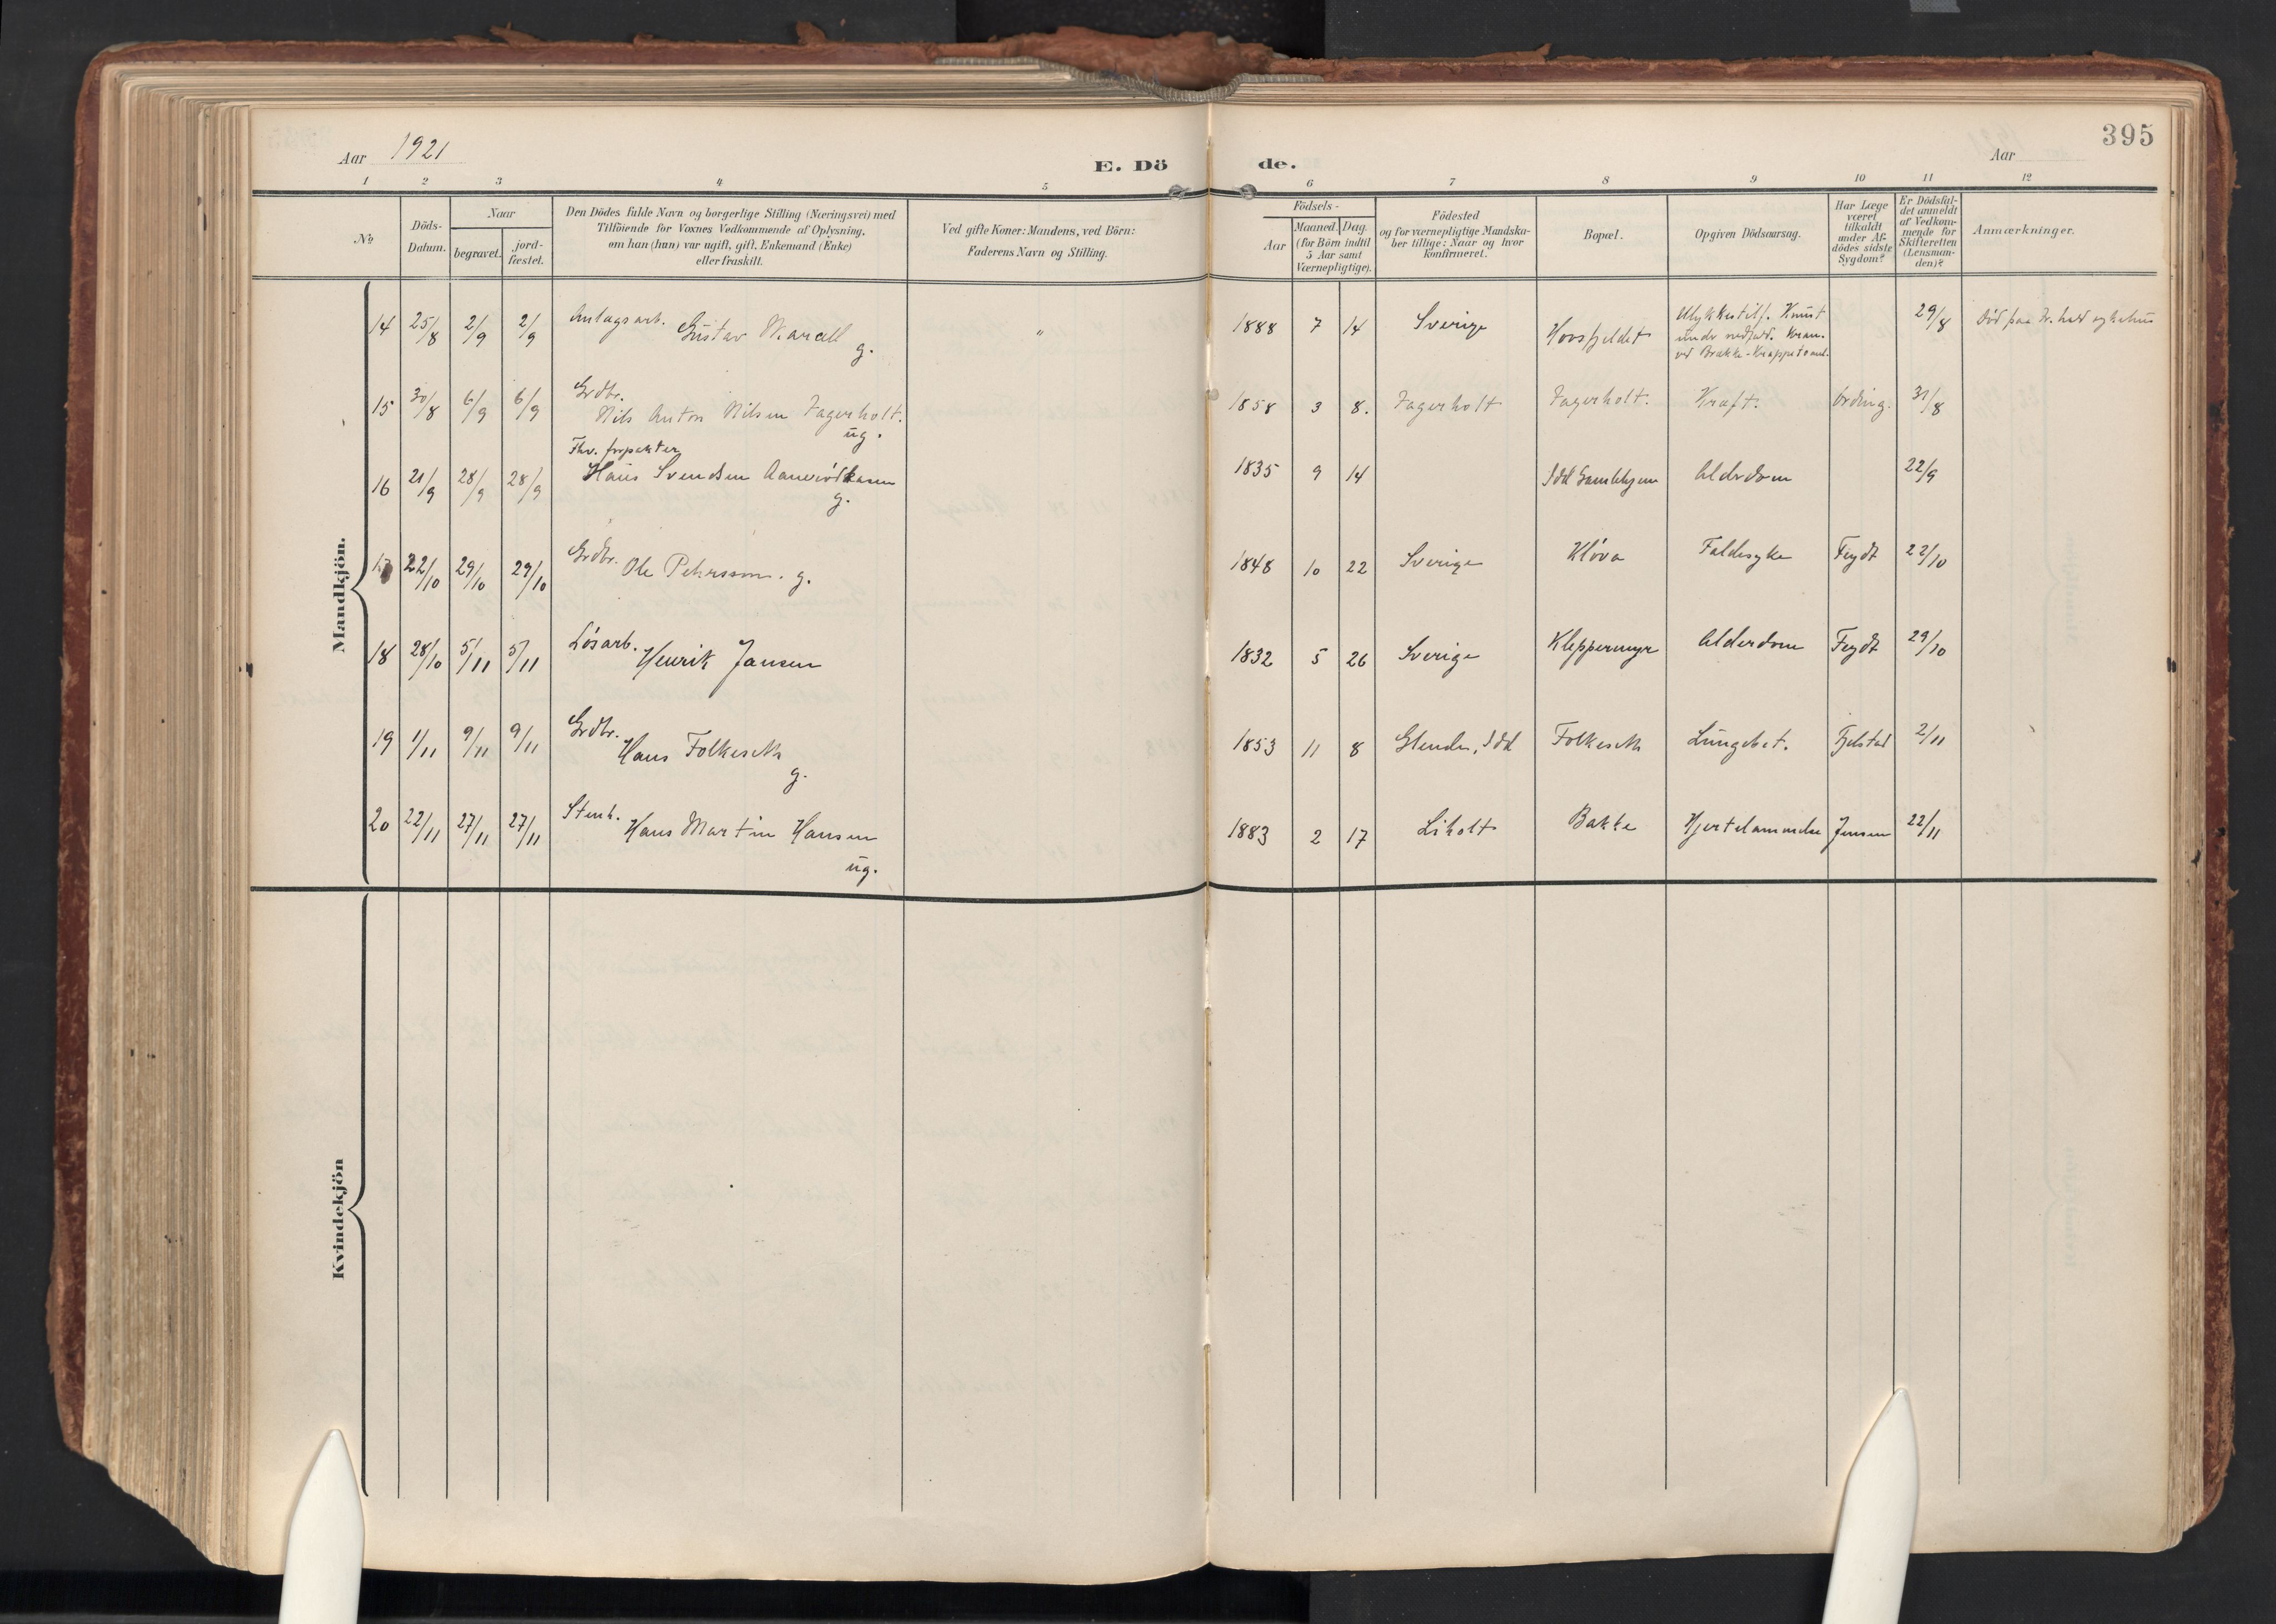 395
Aar 1921
E. Dö de.
Aar
1 2 3 4 5 6 7 8 9 10 11 12
No
Döds-
Datum.
Naar
begravet.
jord-
fæstet.
Den Dödes fulde Navn og borgerlige Stilling (Næringsvei) med
Tilföiende for Voxnes Vedkommende af Oplysning,
om han (hun) var ugift, gift, Enkemand (Enke)
eller fraskilt.
Ved gifte Koner: Mandens, ved Börn:
Faderens Navn og Stilling.
Födsels-
Aar
Maaned. Dag.
(for Börn indtil
5 Aar samt
Værnepligtige).
Födested
og for værnepligtige Mandska-
ber tillige: Naar og hvor
konfirmeret.
Bopæl.
Opgiven Dödsaarsag.
Har Læge
været
tilkaldt
under Af-
dödes sidste
Sygdom?
Er Dödsfal-
det anmeldt
af Vedkom-
mende for
Skifteretten
(Lensman-
den)?
Anmærkninger.
Mandkjön.
14 25/8 2/9 2/9 Anlagsarb. Gustav g. " 1888 7 14 Sverige Hovsfjeldet Ulykkestilf. Knust 29/8 Död paa Fr.hald sykehus
under
ved Brække
15 30/8 6/9 6/9 Grdbr.
Nils Anton Nilsen Fagerholt. 1858 3 8. Fagerholt Fagerholt. Kræft. Ording. 31/8
ug.
Fhv. forpakter
16 21/9 28/9 28/9 Hans Svendsen 1835 9 14 Idd Gamlehjem Alderdom 22/9
g.
17 22/10 29/10 29/10 Grdbr. Ole Pehrsson. g. 1848 10 22 Sverige Klöva Faldesyke Feydt 22/10
18 28/10 5/11 5/11 Lösarb. Henrik Jansen 1832 5 26 Sverige Kleppermyr Alderdom Feydt 29/10
19 1/11 9/11 9/11 Grdbr.
Hans Folkeseth 1853 11 8 Idd Folkeseth Lungebet. Fjelstad 2/11
g.
20 22/11 27/11 27/11 Stenh. Hans Martin Hansen 1883 2 17 Liholt Bakke Hjertelammelse Jensen 22/11
ug.
Kvindekjön